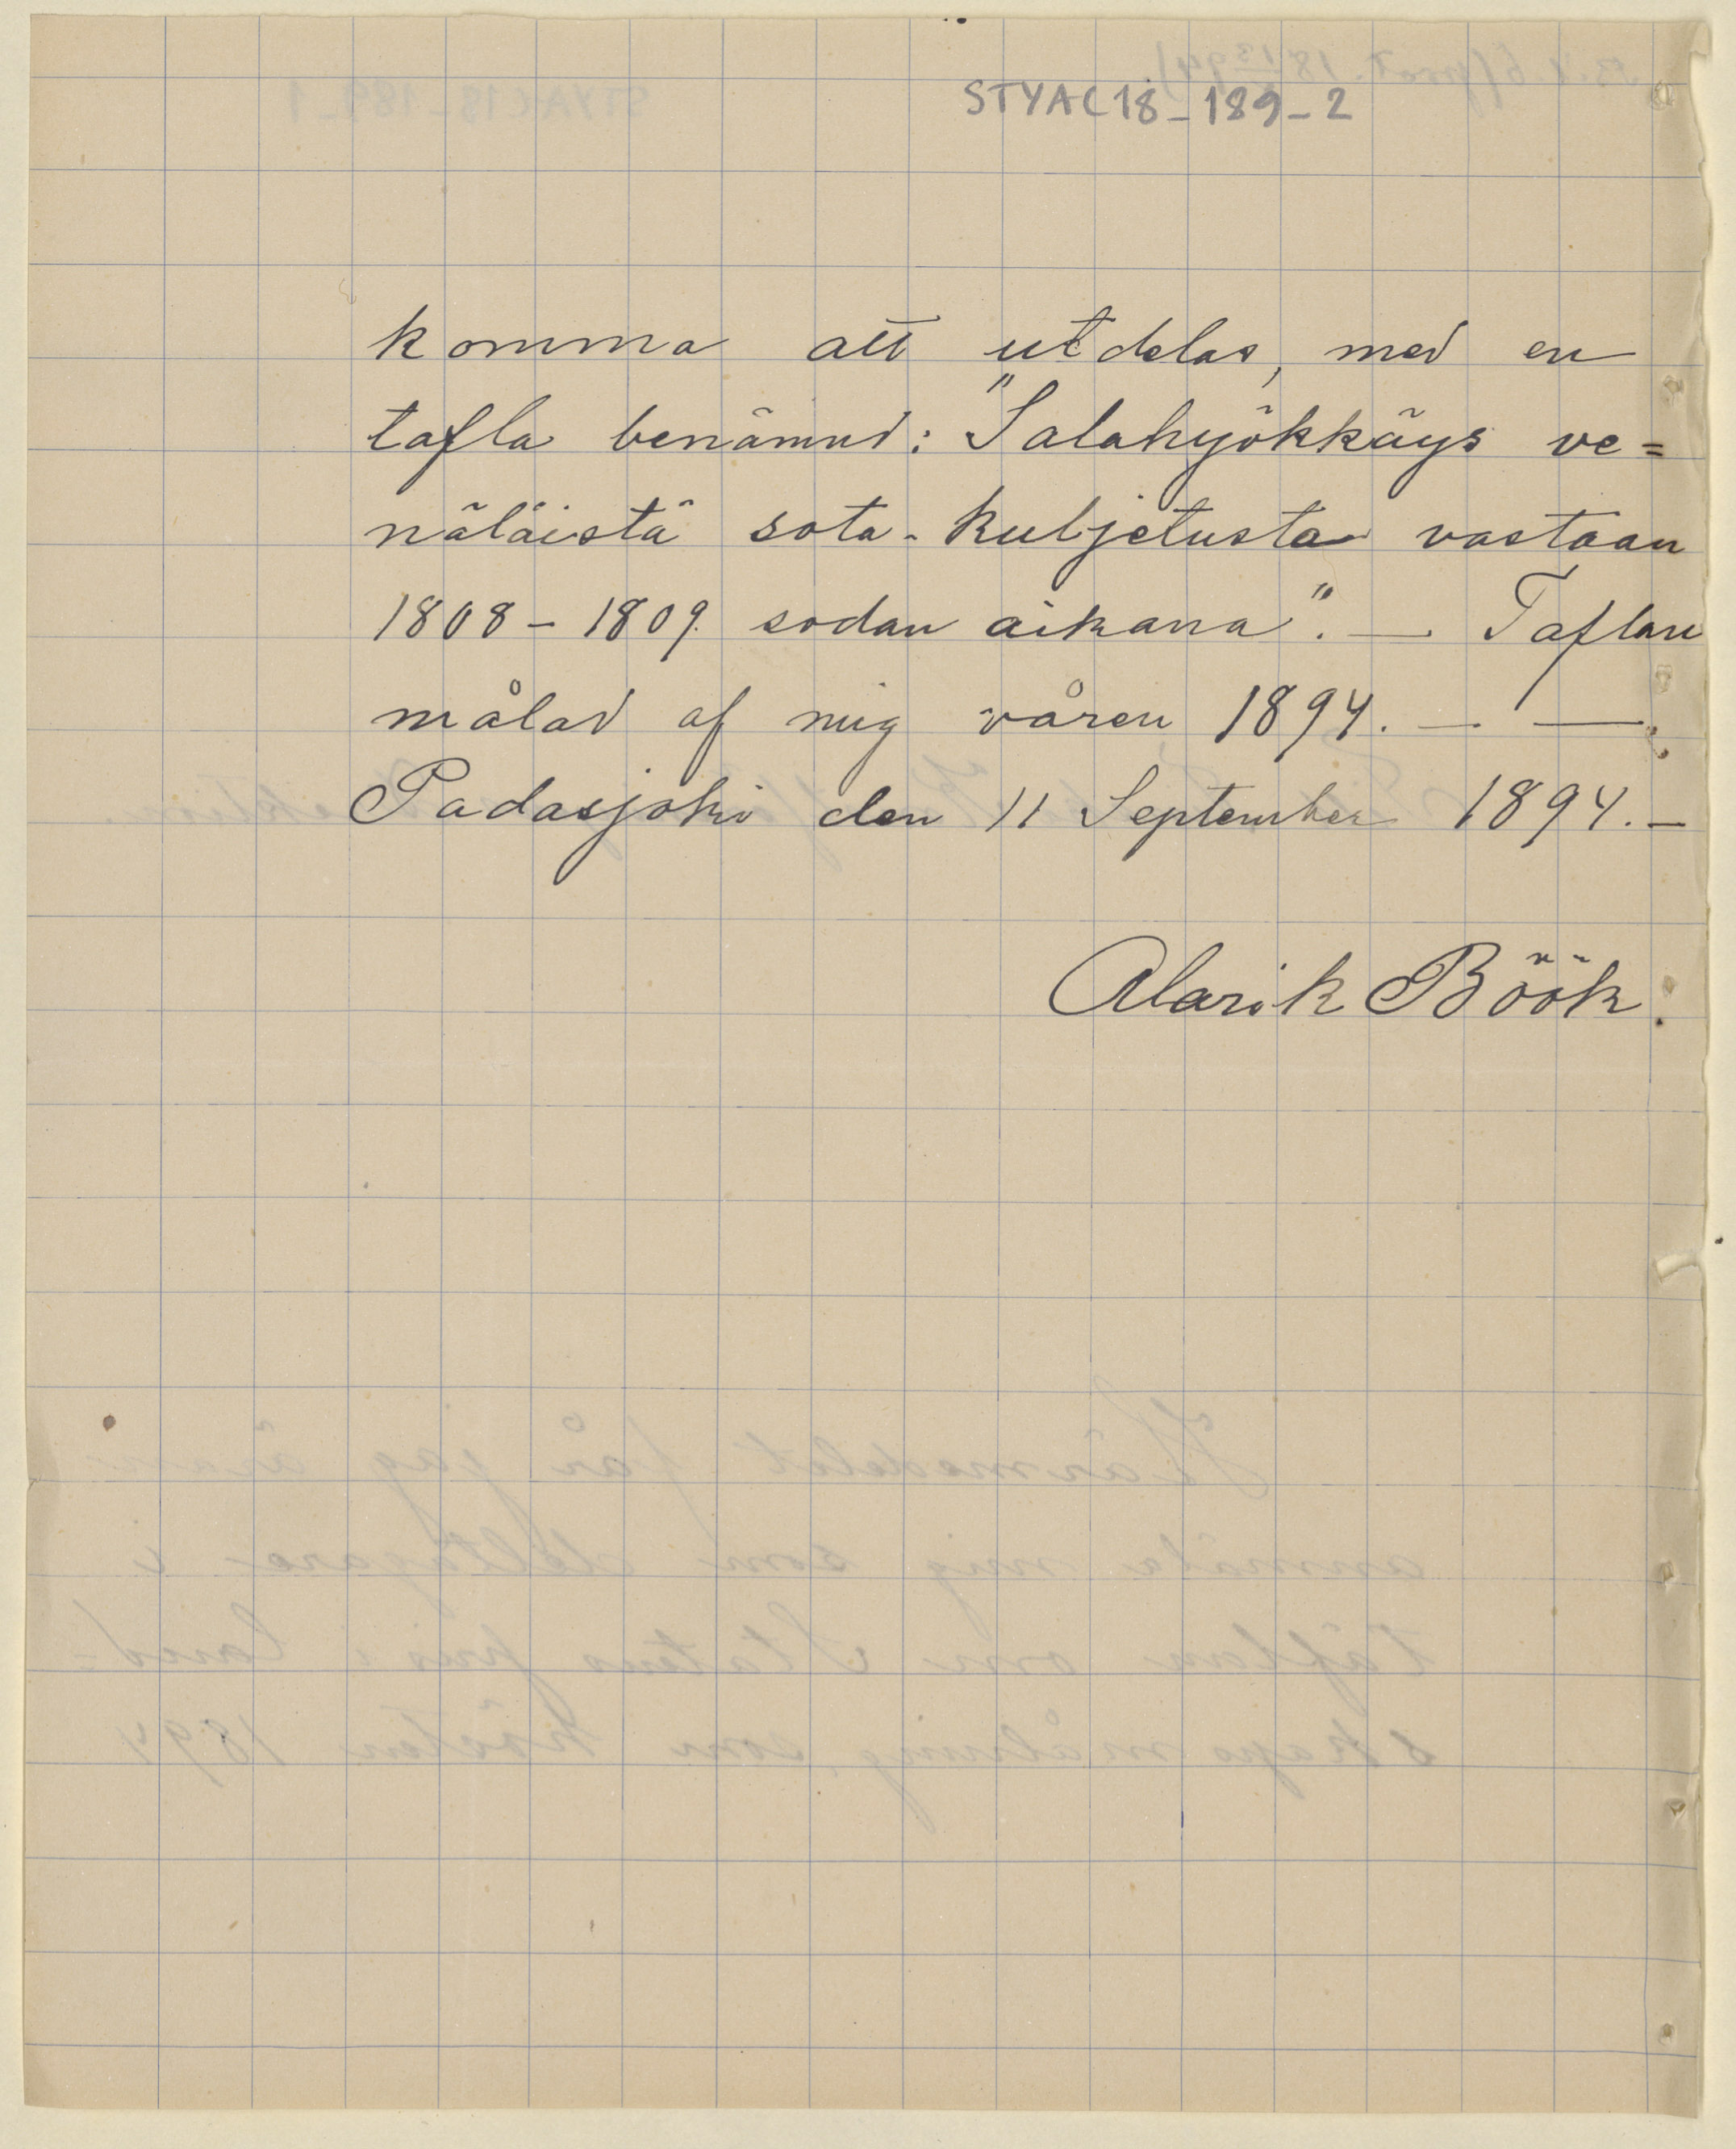 STYAC18-189-2
komma att utdelas, med en
tafla benämnd: "Salahyökkäys ve=
näläistä sota-kuljetusta vastaan
1808-1809 sodan aikana". — Taflan
målad af mig våren 1894. — —
Padasjoki den 11 September 1894. —
Alarik Böök.